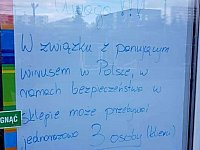 Uwaga !!!
W związku z panującym
wirusem w Polsce, w
ramach bezpieczeństwa w
sklepie może przebywać
jednorazowo 3 osoby (klienci)
GNĄĆ